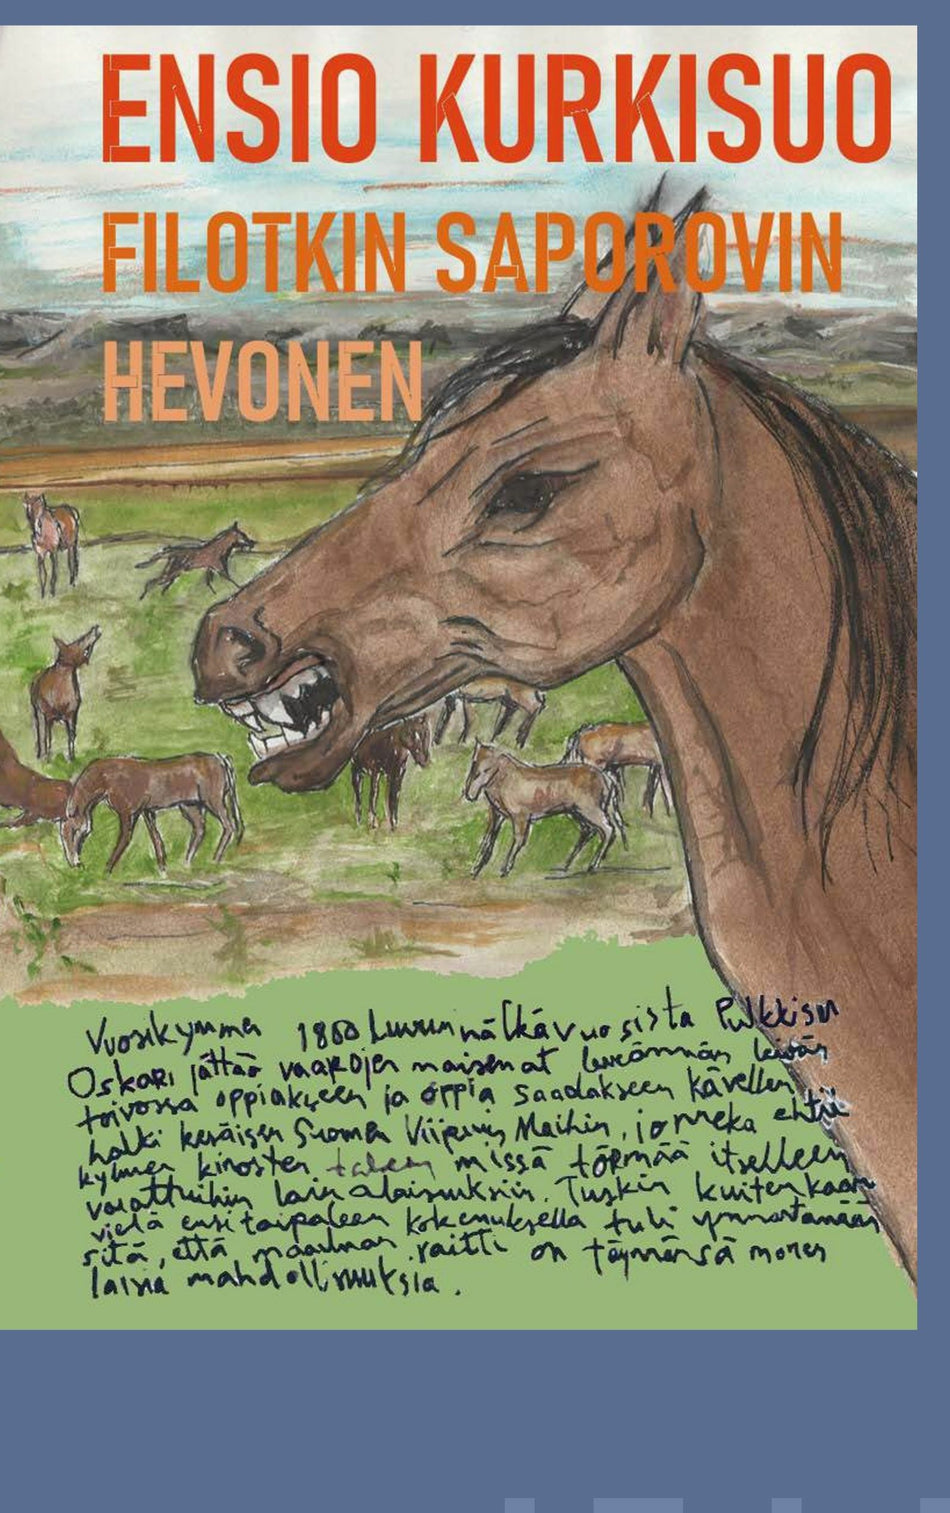 ENSIO KURKISUO
FILOTKIN SAPOROVIN
HEVONEN
Vuosikymmen 1860 luvun nälkävuosista Pulkkisen
Oskari jättää vaarojen maisemat leveämmän leivän
toivossa oppiakseen ja oppia saadakseen kävellen
halki keväisen Suomen Viipurin Maihin, jonneka ehtii
kylmen kinosten missä törmää itselleen
varattuihin lainalaisuuksiin. Tuskin kuitenkaan
vielä ensitaipaleen kokemuksella tuli ymmärtämään
sitä, että, maailman raitti on täynnänsä monen
laisia mahdollisuuksia.